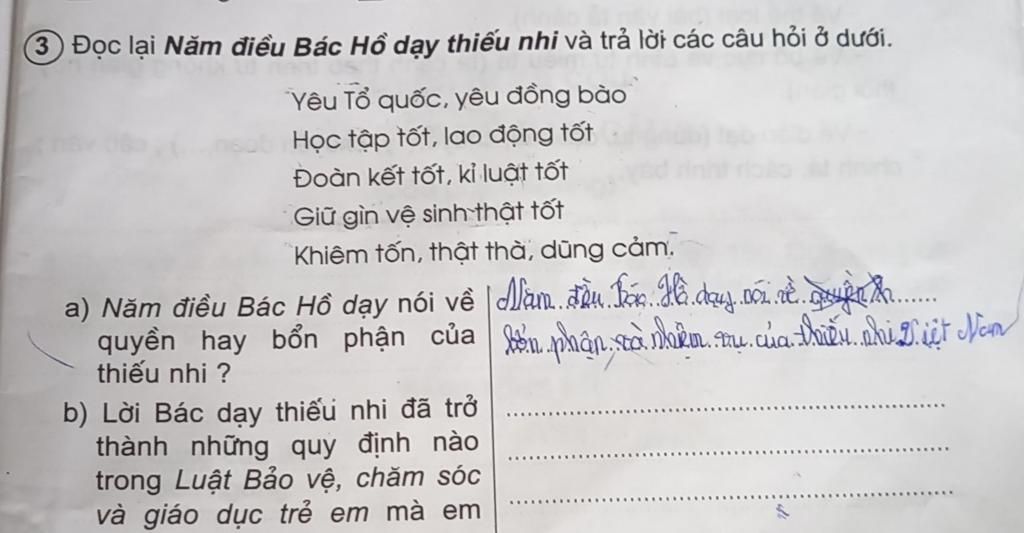 3 Đọc lại Năm điều Bác Hồ dạy thiếu nhi và trả lời các câu hỏi ở dưới.
Yêu Tổ quốc, yêu đồng bào
Học tập tốt, lao động tốt
Đoàn kết tốt, kỉ luật tốt
Giữ gìn vệ sinh thật tốt
Khiêm tốn, thật thà, dũng cảm.
a) Năm điều Bác Hồ dạy nói về
quyền hay bổn phận của
thiếu nhi ?
Năm điều Bác Hồ dạy nói về
bổn phận và nhiệm vụ của thiếu nhi Việt Nam
b) Lời Bác dạy thiếu nhi đã trở
thành những quy định nào
trong Luật Bảo vệ, chăm sóc
và giáo dục trẻ em mà em